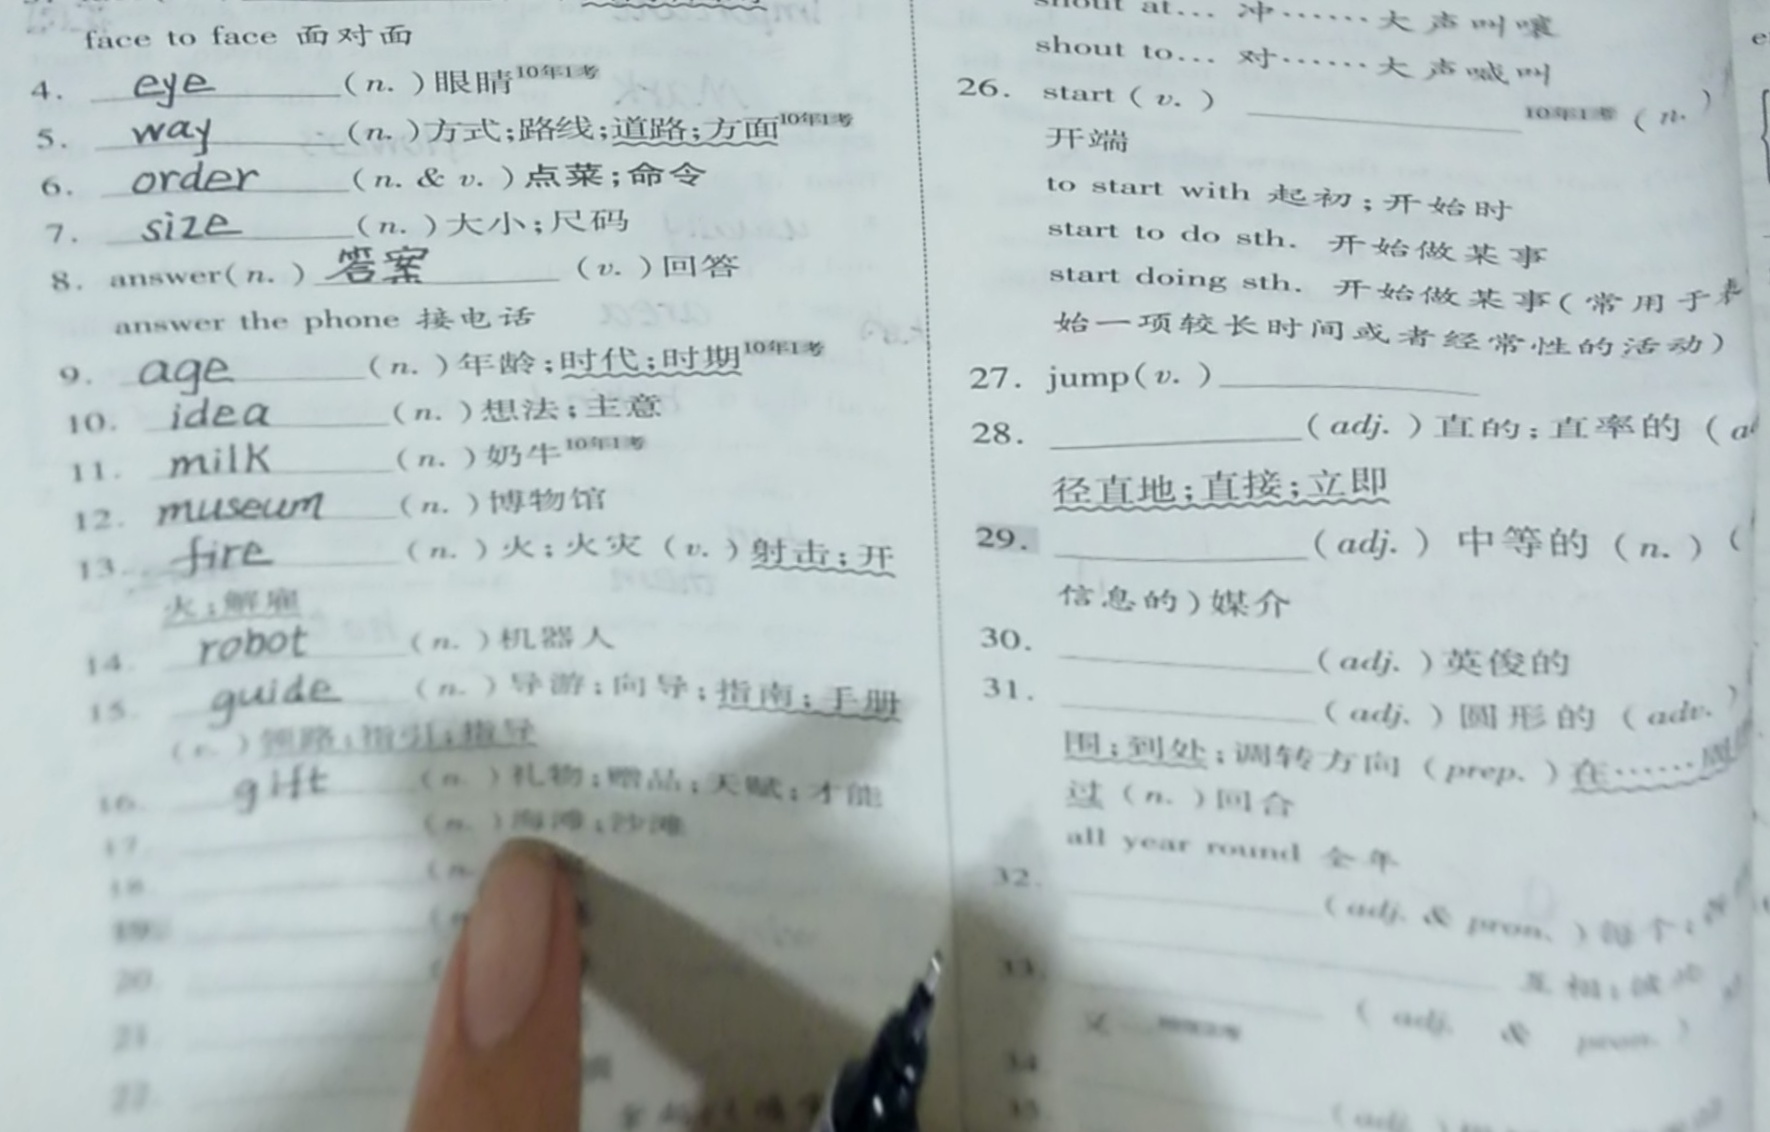 face to face 面对面
4. eye (n.)眼睛10年1考
5. way (n.)方式;路线;道路;方面10年1考
6. order (n. & v.)点菜;命令
7. size (n.)大小;尺码
8. answer(n.) 答案 (v.)回答
answer the phone 接电话
9. age (n.)年龄;时代;时期10年1考
10. idea (n.)想法;主意
11. milk (n.)奶牛10年1考
12. museum (n.)博物馆
13. fire (n.)火;火灾(v.)射击;开
火;解雇
14. robot (n.)机器人
15. guide (n.)导游;向导;指南;手册
(v.)领路;指引;指导
16. gift (n.)礼物;赠品;天赋;才能
17. (n.)海滩;沙滩
18. (n.
19.
20.
21.
22.
shout at... 冲……大声叫嚷
shout to... 对……大声喊叫
26. start(v.) 10年1考(n.)
开端
to start with 起初;开始时
start to do sth. 开始做某事
start doing sth. 开始做某事(常用于
始一项较长时间或者经常性的活动)
27. jump(v.)
28. (adj.)直的;直率的(a
径直地;直接;立即
29. (adj.)中等的(n.)(
信息的)媒介
30. (adj.)英俊的
31. (adj.)圆形的(adv.)
围;到处;调转方向(prep.)在……周
过(n.)回合
all year round 全年
32. (adj. & pron.)每个;
互相;彼此
33. (adj. & pron.)
34
35 (adj.